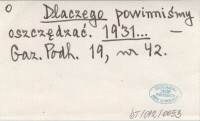 O Dlaczego powinniśmy
oszczędzać. 1931... –
Gaz. Podh. 19, nr 42.
bT/012/0053